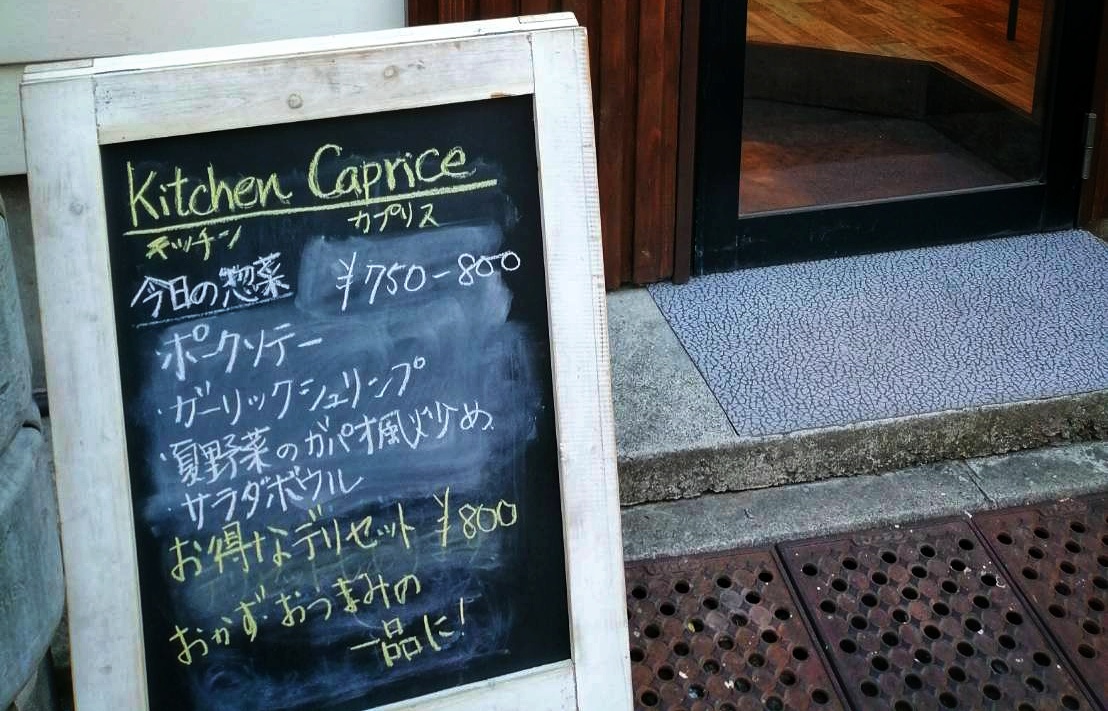 Kitchen Caprice
キッチン カプリス
今日の惣菜 ¥750-800
ポークソテー
・ガーリックシュリンプ
・夏野菜のガパオ風炒め
・サラダボウル
お得なデリセット ¥800
おかず・おつまみの
一品に!